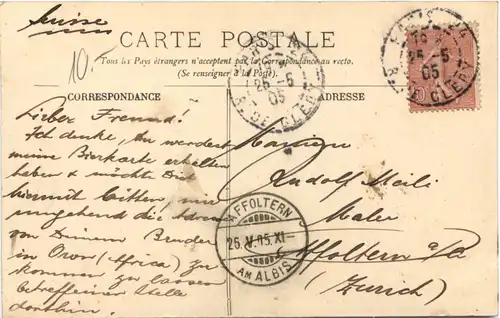 Suisse
10.
CARTE POSTALE
Tous les Pays étrangers n'acceptent pas la Correspondance au recto.
(Se renseigner à la Poste).
CORRESPONDANCE
Lieber Freund!
Ich denke, du werdest
meine Bierkarte erhalten
haben & möchte Dich
hiermit bitten, mir
umgehend die Adresse
von Deinem Bruder
in Oron (Africa) zu
kommen zu lassen
betreffender Stelle
dorthin.
ADRESSE
Monsieur
Rudolf Meili
Maler
Affoltern a/A
(Zürich)
25-5
05
R. DE CLERY
25-5
05
R. DE CLERY
AFFOLTERN
26.V.05.XI-
AM ALBIS